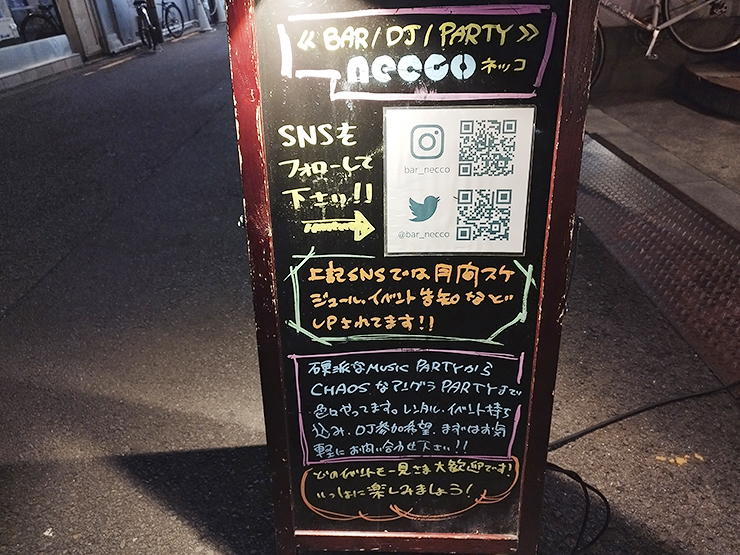 《BAR/DJ/PARTY》
necco ネッコ
SNSを
フォローして
下さい!!
bar_necco
@bar_necco
上記SNSでは月間スケ
ジュール、イベント告知など
UPされてます!!
硬派なMUSIC PARTYから
CHAOSなアングラPARTYまで
色々やってます。レンタル、イベント持ち
込み、DJ参加希望、まずはお気
軽にお問い合わせ下さい!!
どのイベントも一見さま大歓迎です!
いっしょに楽しみましょう!